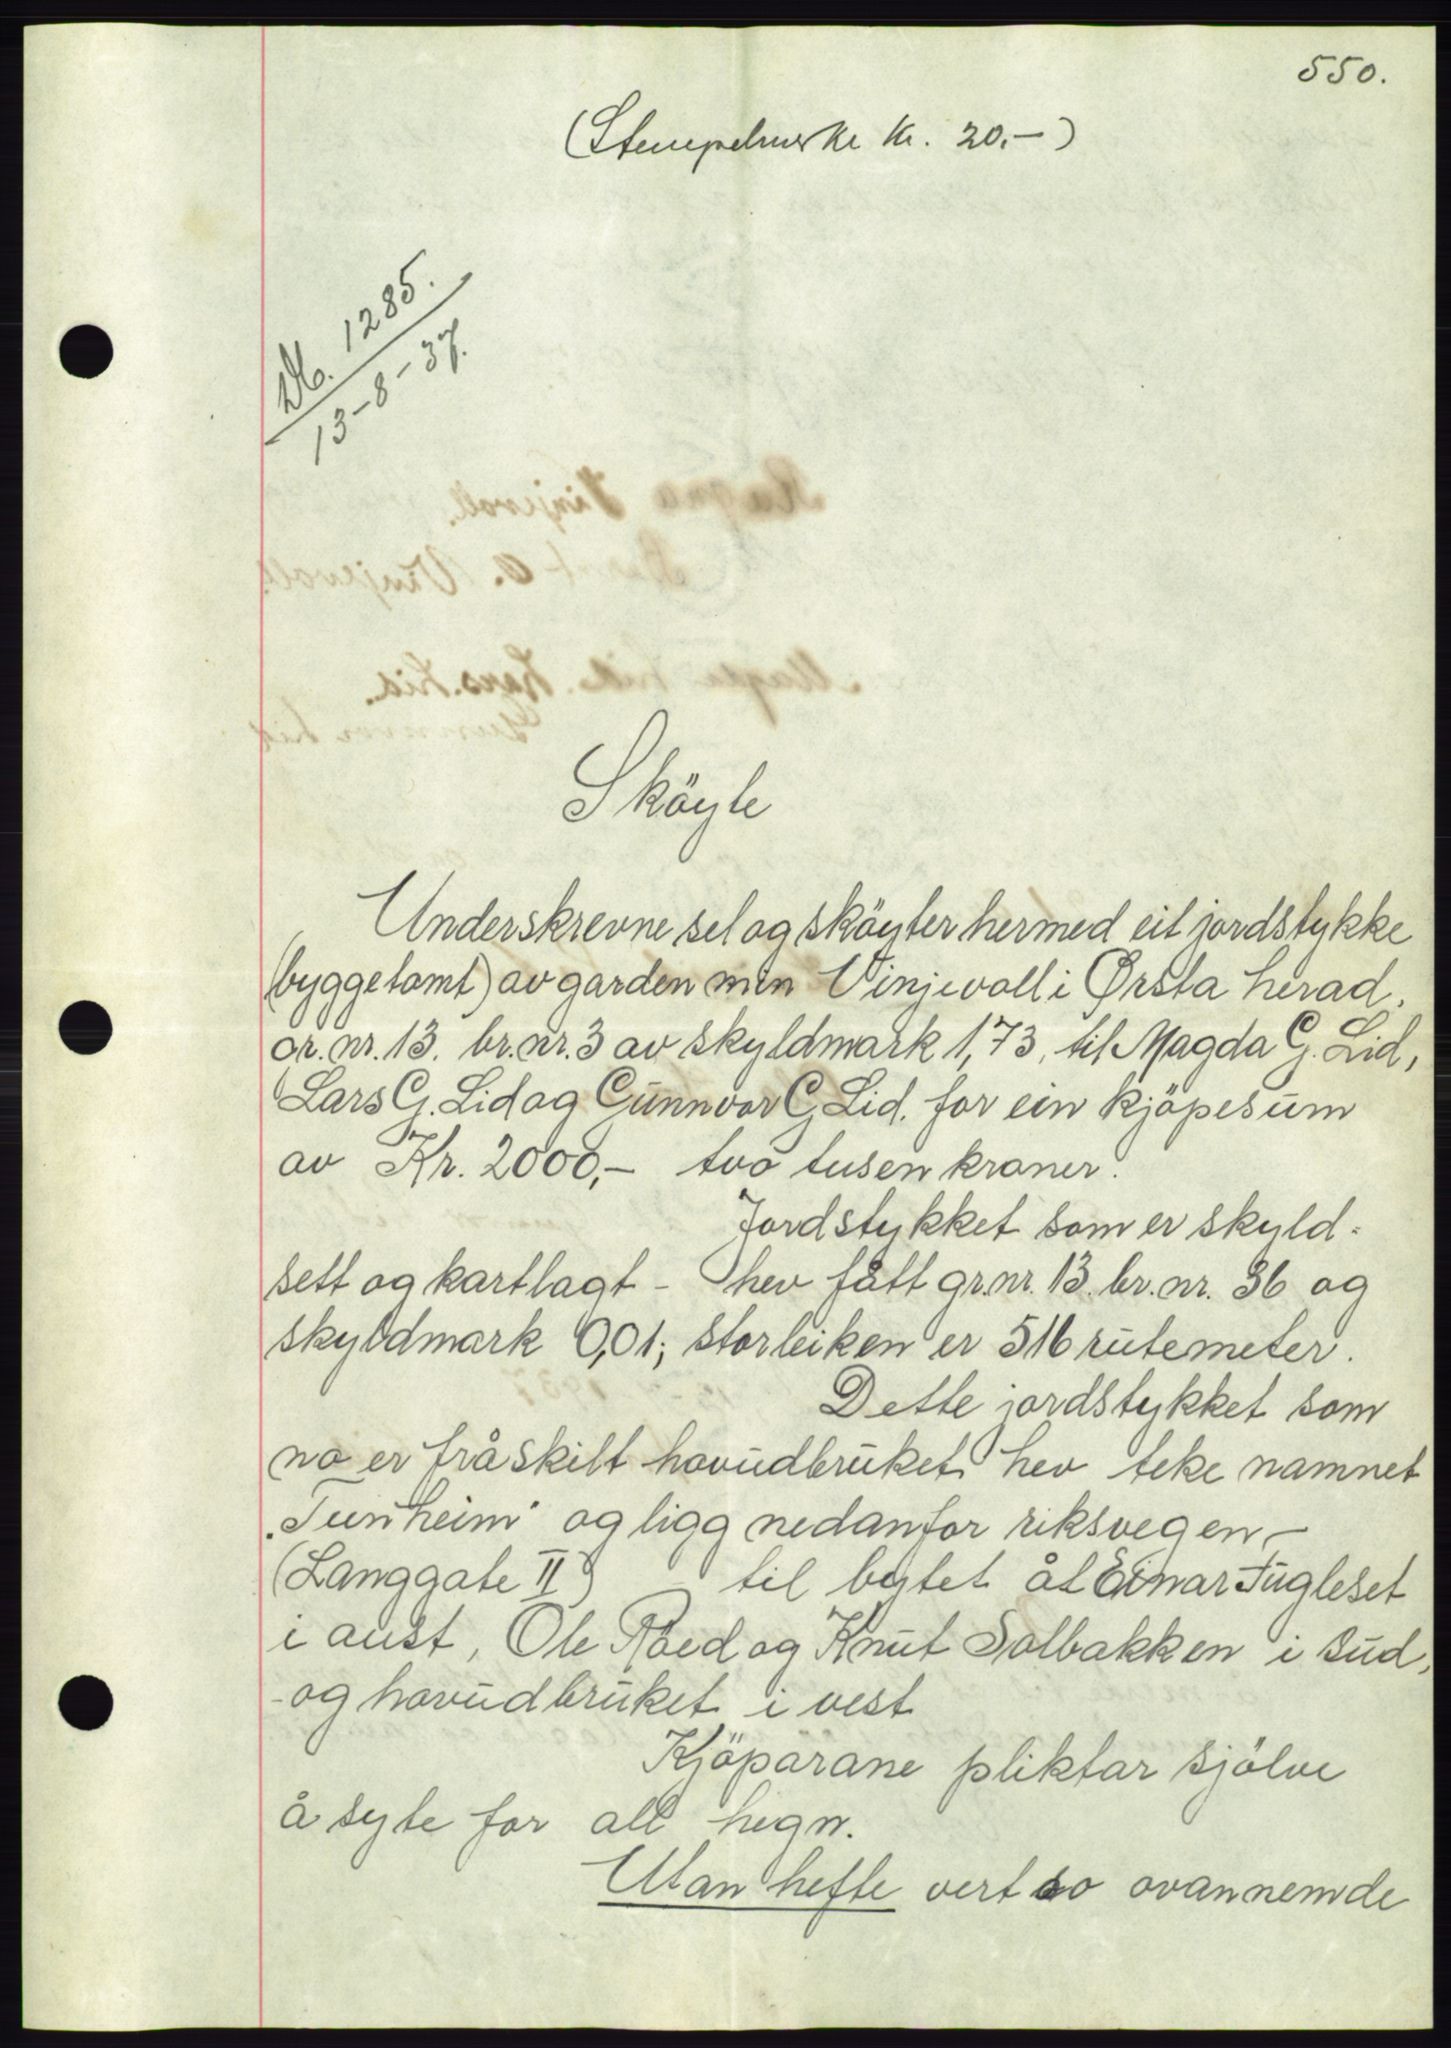 550.
(Stempelmerke kr. 20.-)
Db. 1285.
13-8-37.
Sköyte
Underskrevne sel og sköyter hermed eit jordstykke
(byggetomt) av garden min Vinjevoll i Ørsta herad.
gr. nr. 13. br. nr. 3 av skyldmark 1,73, til Magda G. Lid,
Lars G. Lid og Gunnvor G Lid. for ein kjöpesum
av Kr. 2000,- tvo tusen kroner.
Jordstykket som er skyld-
sett og kartlagt - hev fått gr.nr. 13. br. nr. 36 og
skyldmark 0,01; storleiken er 516 rutemeter.
Dette jordstykket som
no er fråskilt hovudbruket hev teke namnet
"Tunheim" og ligg nedanfor riksvegen,-
(Langgate II) til bytet åt Einar Fugleset
i aust, Ole Roed og Knut Solbakken i sud,
-og hovudbruket i vest
Kjöparane pliktar sjölve
å syte for alt hegn.
Utan hefte vert so ovannemde